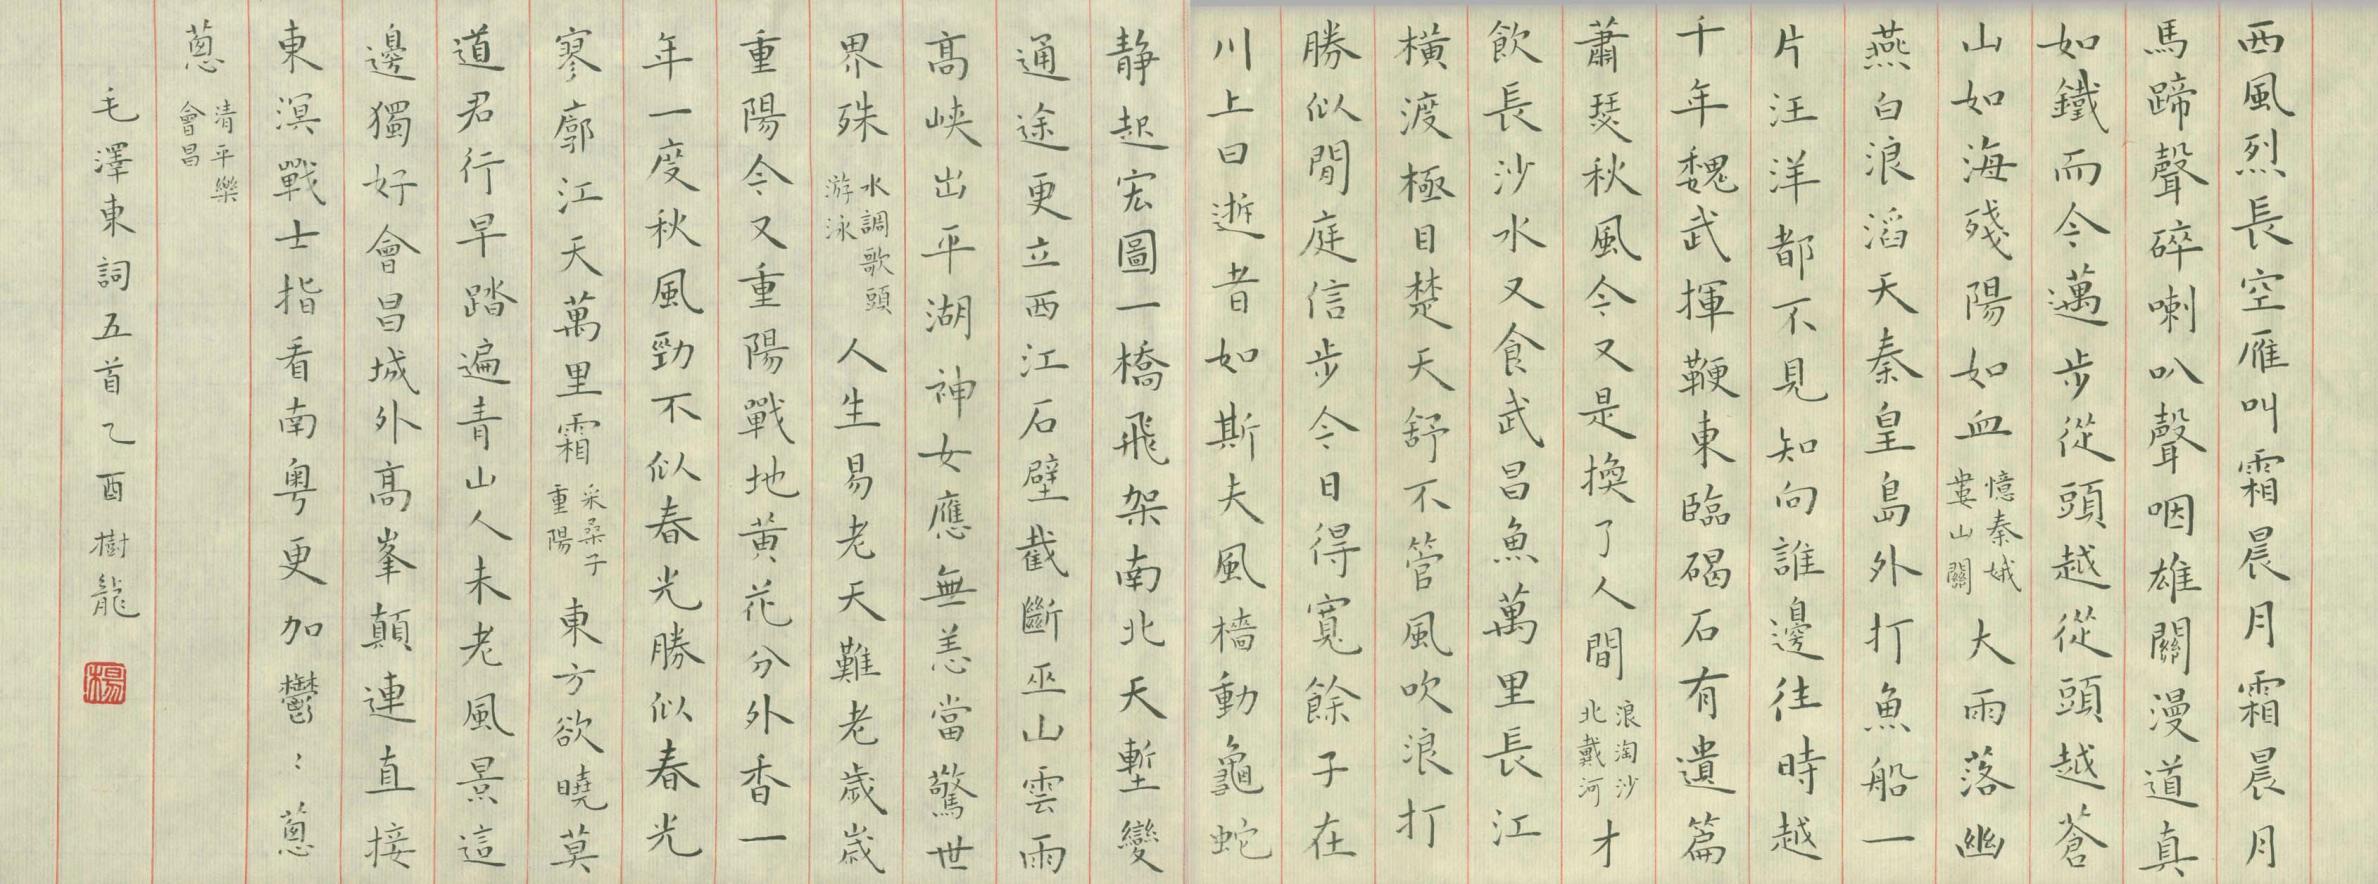 西風烈長空雁叫霜晨月霜晨月
馬蹄聲碎喇叭聲咽雄關漫道真
如鐵而今邁步從頭越從頭越蒼
山如海殘陽如血憶秦娥婁山關大雨落幽
燕白浪滔天秦皇島外打魚船一
片汪洋都不見知向誰邊往時越
千年魏武揮鞭東臨碣石有遺篇
蕭瑟秋風今又是換了人間浪淘沙北戴河才
飲長沙水又食武昌魚萬里長江
橫渡極目楚天舒不管風吹浪打
勝似閒庭信步今日得寬餘子在
川上曰逝者如斯夫風檣動龜蛇
靜起宏圖一橋飛架南北天塹變
通途更立西江石壁截斷巫山雲雨
高峽出平湖神女應無恙當驚世
界殊水調歌頭游泳人生易老天難老歲歲
重陽今又重陽戰地黃花分外香一
年一度秋風勁不似春光勝似春光
寥廓江天萬里霜采桑子重陽東方欲曉莫
道君行早踏遍青山人未老風景這
邊獨好會昌城外高峯顛連直接
東溟戰士指看南粵更加鬱〻蔥
蔥清平樂會昌
毛澤東詞五首乙酉樹龍
楊